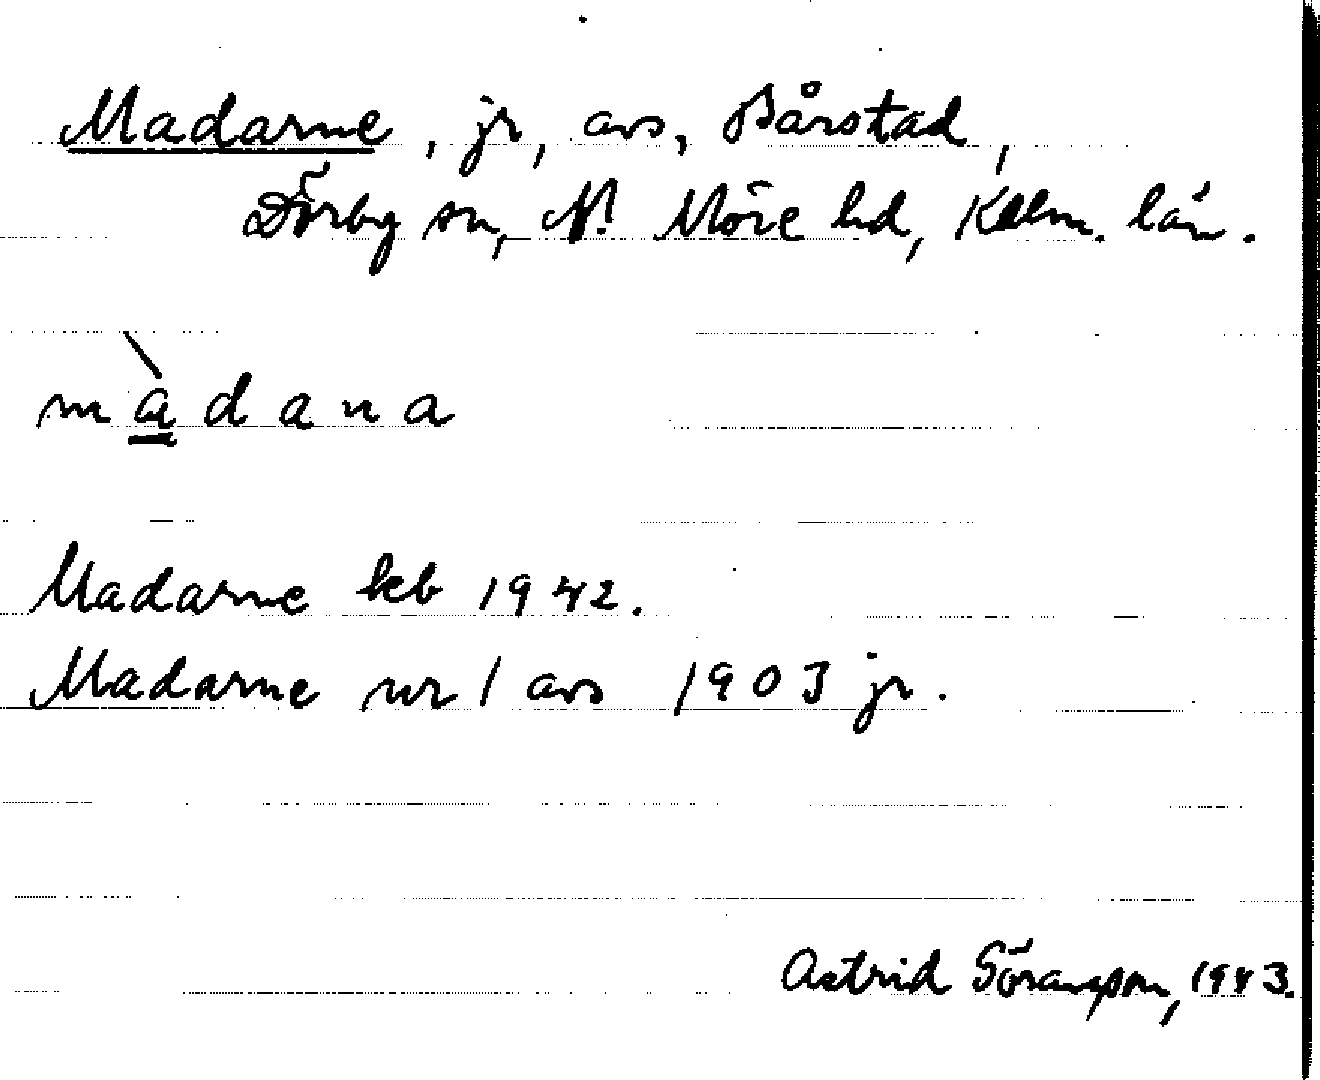 Madarne, jr, avs, Bårstad,
Dörby sn, N. Möre hd, Kalm. län.
màdana
Madarne kb 1942.
Madarne nr 1 avs 1903 jr.
Astrid Göransson, 1943.